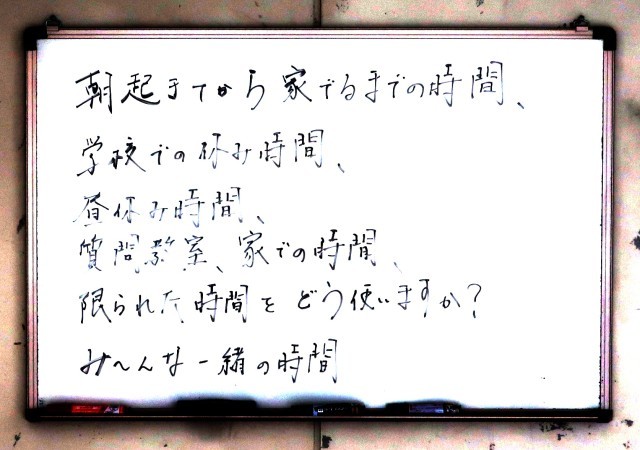 朝起きてから家でるまでの時間、
学校での休み時間、
昼休み時間、
質問教室、家での時間、
限られた時間をどう使いますか?
み〜んな一緒の時間